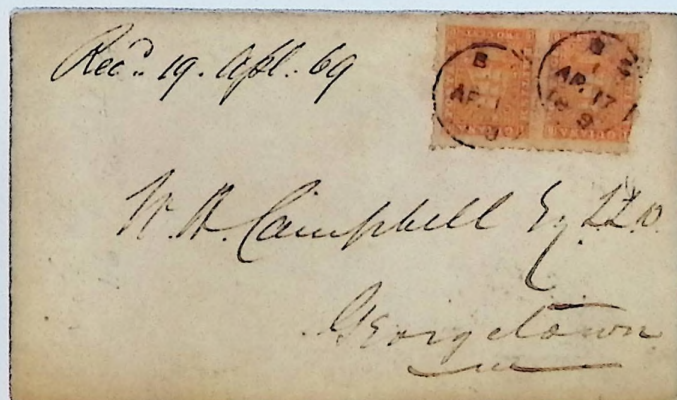 Rec^d. 19. Apl. 69
B
AP. 17
69
B
AP. 1
W. H. Campbell Esq. LL.D.
Georgetown